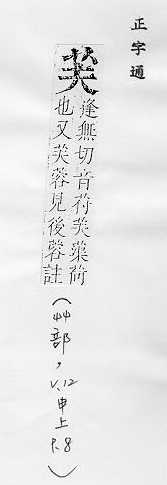 正字通
芙
逢無切音苻芙蕖荷
也又芙蓉見後蓉註
(艸部，V.12 申上 P.8)